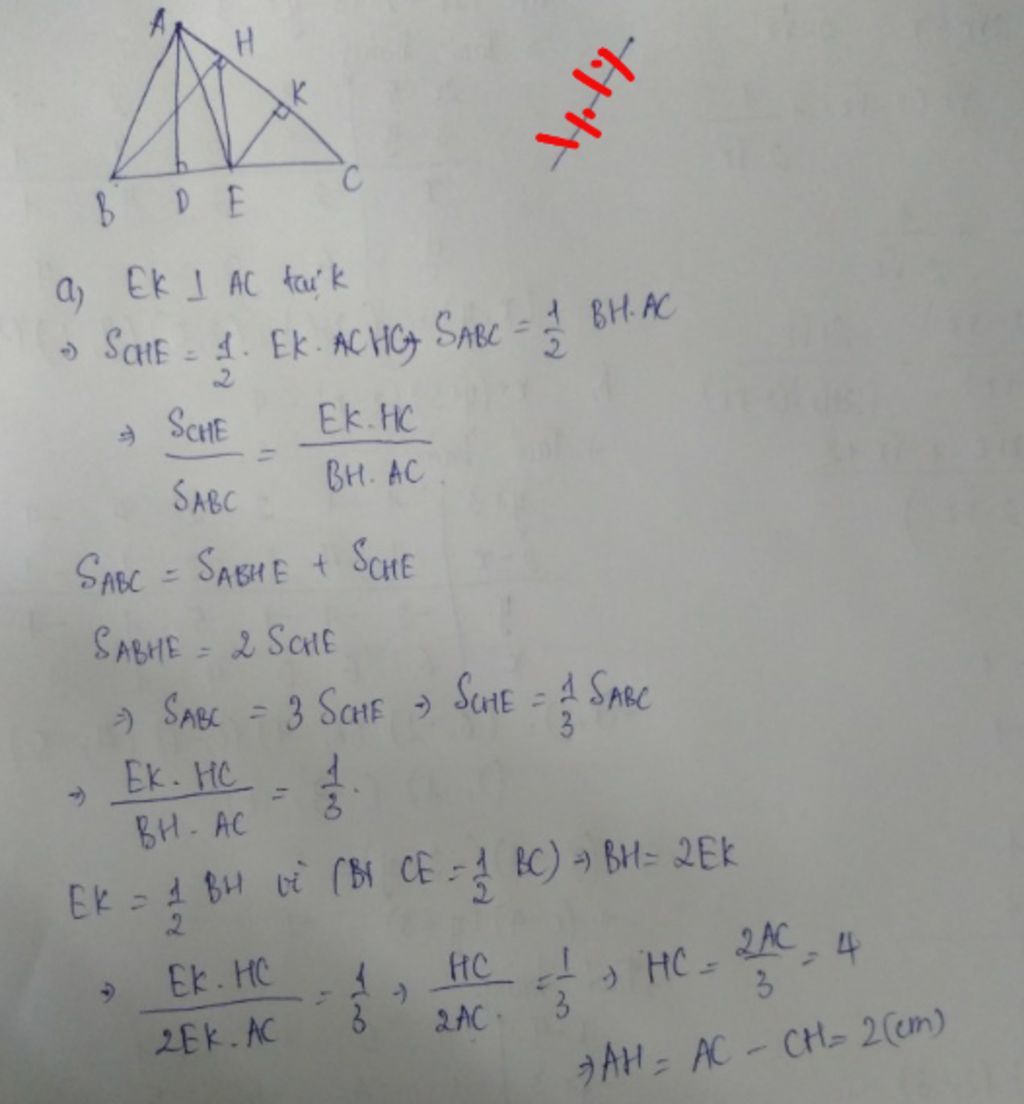 A
H
K
B D E C
a) EK ⊥ AC tại K
⇒ SCHE = 1/2 . EK . ACHC ⇒ SABC = 1/2 BH.AC
⇒ SCHE/SABC = EK.HC/BH.AC
SABC = SABHE + SCHE
SABHE = 2 SCHE
⇒ SABC = 3 SCHE ⇒ SCHE = 1/3 SABC
⇒ EK.HC/BH.AC = 1/3.
EK = 1/2 BH vì (BH CE = 1/2 BC) ⇒ BH = 2EK
⇒ EK.HC/2EK.AC = 1/3 ⇒ HC/2AC = 1/3 ⇒ HC = 2AC/3 = 4
⇒ AH = AC - CH = 2(cm)